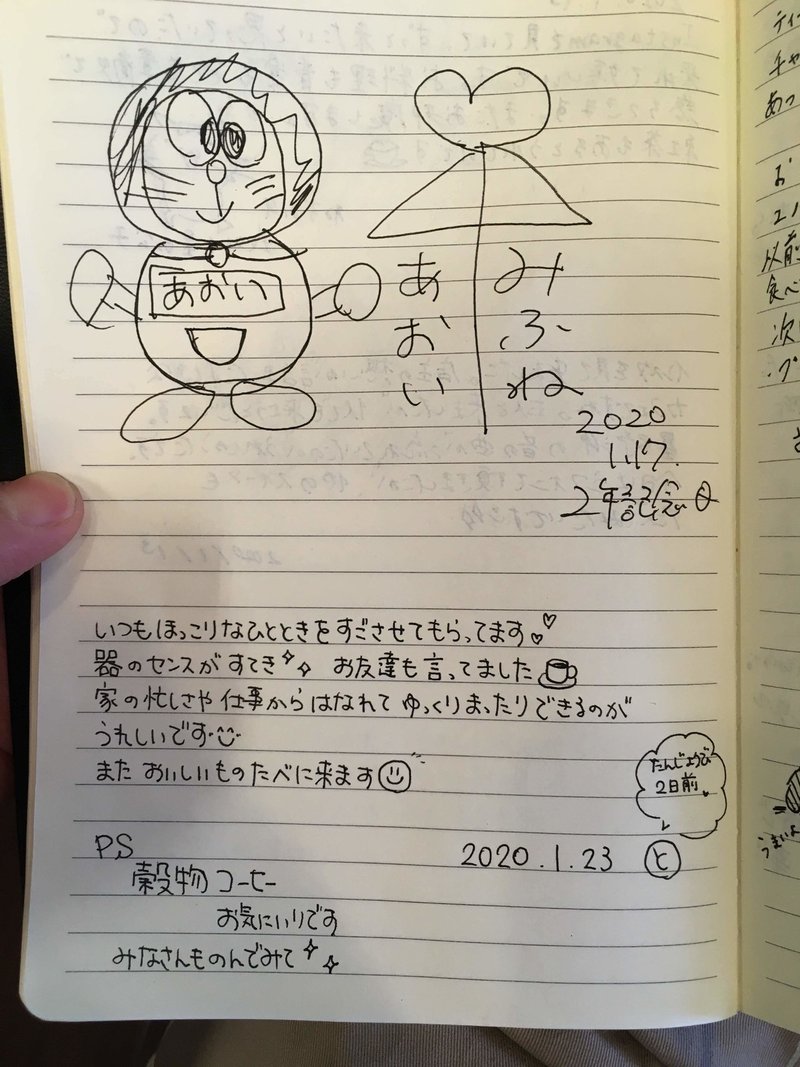 あおい
みふね
あおい
2020
1.17.
2年記念日
いつもほっこりなひとときをすごさせてもらってます
器のセンスがすてき お友達も言ってました
家の忙しさや仕事からはなれて ゆっくりまったりできるのが
うれしいです
また おいしいものたべに来ます
たんじょうび
2日前
PS
2020.1.23 と
穀物コーヒー
お気にいりです
みなさんものんでみて
ティ
チャ
あっ
お
以前
食べ
次
うまいよ